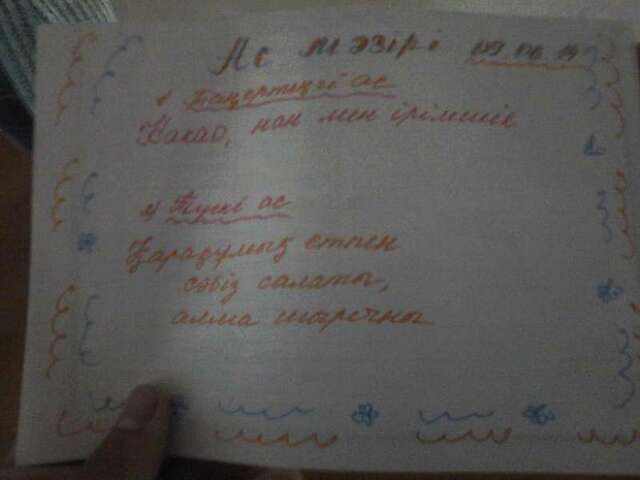 Ас мәзірі 09.06.14
1) Таңертеңгі ас
Какао, нан мен ірімшік
2) Түскі ас
Қарақұмық етпен
сәбіз салаты,
алма шырыны